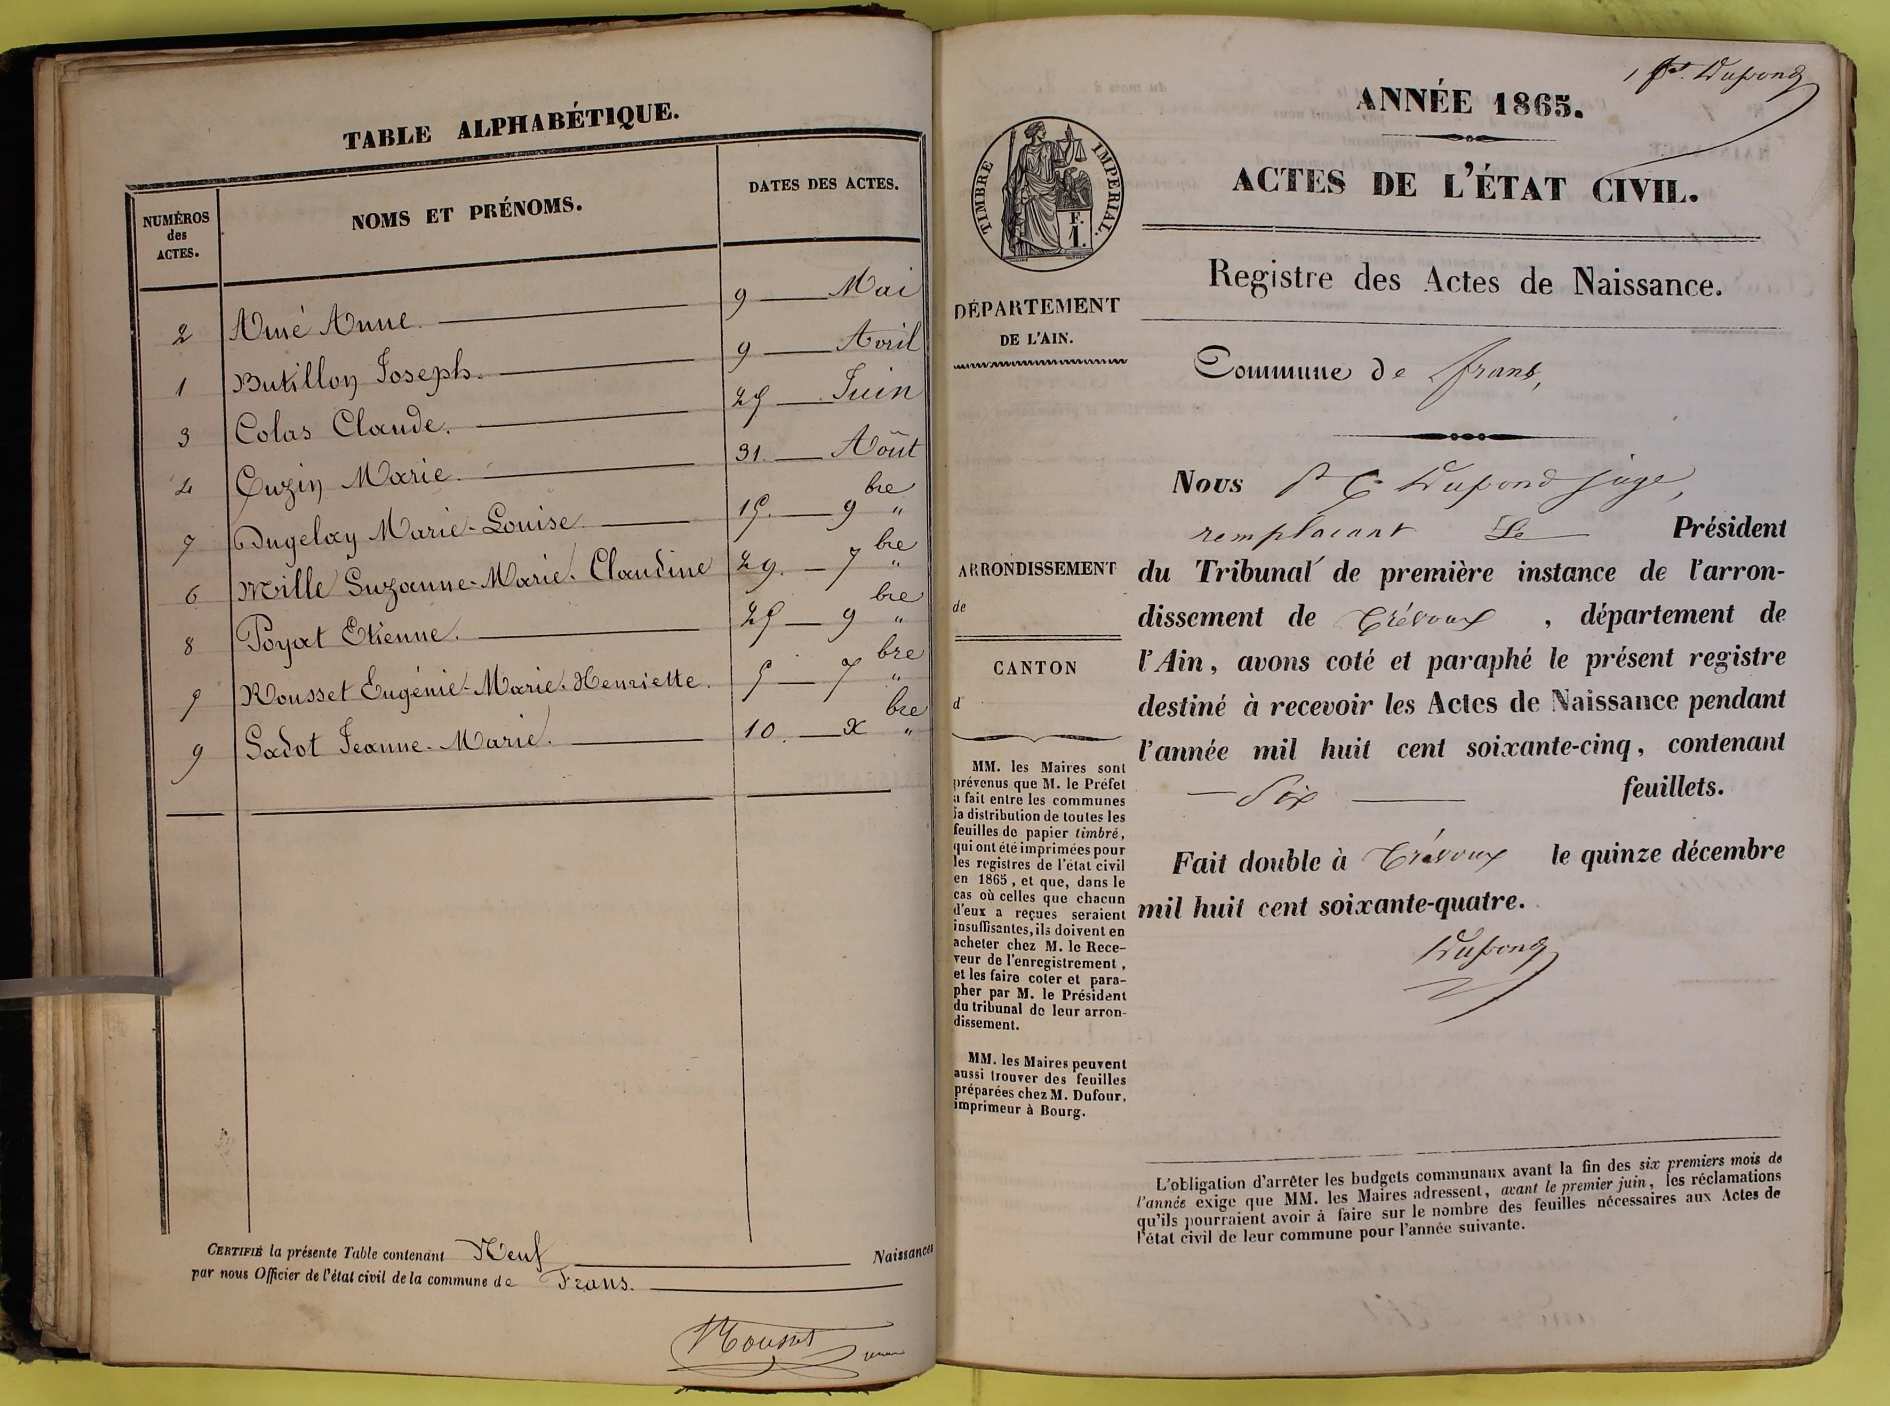 TABLE ALPHABÉTIQUE.
NUMÉROS
des
ACTES.
NOMS ET PRÉNOMS.
DATES DES ACTES.
2 Amé Anne. 9 Mai
1 Butillon Joseph. 9 Avril
3 Colas Claude. 25 Juin
4 Cuzin Marie. 31. Août
7 Dugelay Marie-Louise 15. 9 bre "
6 Mille Suzanne-Marie-Claudine 29. 7 bre "
8 Poyat Etienne. 25 9 bre "
5 Rousset Eugénie-Marie-Henriette. 5 7 bre "
9 Sadot Jeanne-Marie. 10. x bre "
CERTIFIÉ la présente Table contenant Neuf Naissances
par nous Officier de l'état civil de la commune de Frans.
Rousset
1 er Dupond
ANNÉE 1865.
ACTES DE L'ÉTAT CIVIL.
TIMBRE IMPÉRIAL.
F.
1.
Registre des Actes de Naissance.
DÉPARTEMENT
DE L'AIN.
Commune de frans,
Nous Dupond juge,
remplacant Le Président
du Tribunal de première instance de l'arron-
dissement de Trévoux, département de
l'Ain, avons coté et paraphé le présent registre
destiné à recevoir les Actes de Naissance pendant
l'année mil huit cent soixante-cinq, contenant
Six feuillets.
Fait double à Trévoux le quinze décembre
mil huit cent soixante-quatre.
Dupond
ARRONDISSEMENT
de
CANTON
d
MM. les Maires sont
prévenus que M. le Préfet
a fait entre les communes
la distribution de toutes les
feuilles de papier timbré,
qui ont été imprimées pour
les registres de l'état civil
en 1865, et que, dans le
cas où celles que chacun
d'eux a reçues seraient
insuffisantes, ils doivent en
acheter chez M. le Rece-
veur de l'enregistrement,
et les faire coter et para-
pher par M. le Président
du tribunal de leur arron-
dissement.
MM. les Maires peuvent
aussi trouver des feuilles
préparées chez M. Dufour,
imprimeur à Bourg.
L'obligation d'arrêter les budgets communaux avant la fin des six premiers mois de
l'année exige que MM. les Maires adressent, avant le premier juin, les réclamations
qu'ils pourraient avoir à faire sur le nombre des feuilles nécessaires aux Actes de
l'état civil de leur commune pour l'année suivante.